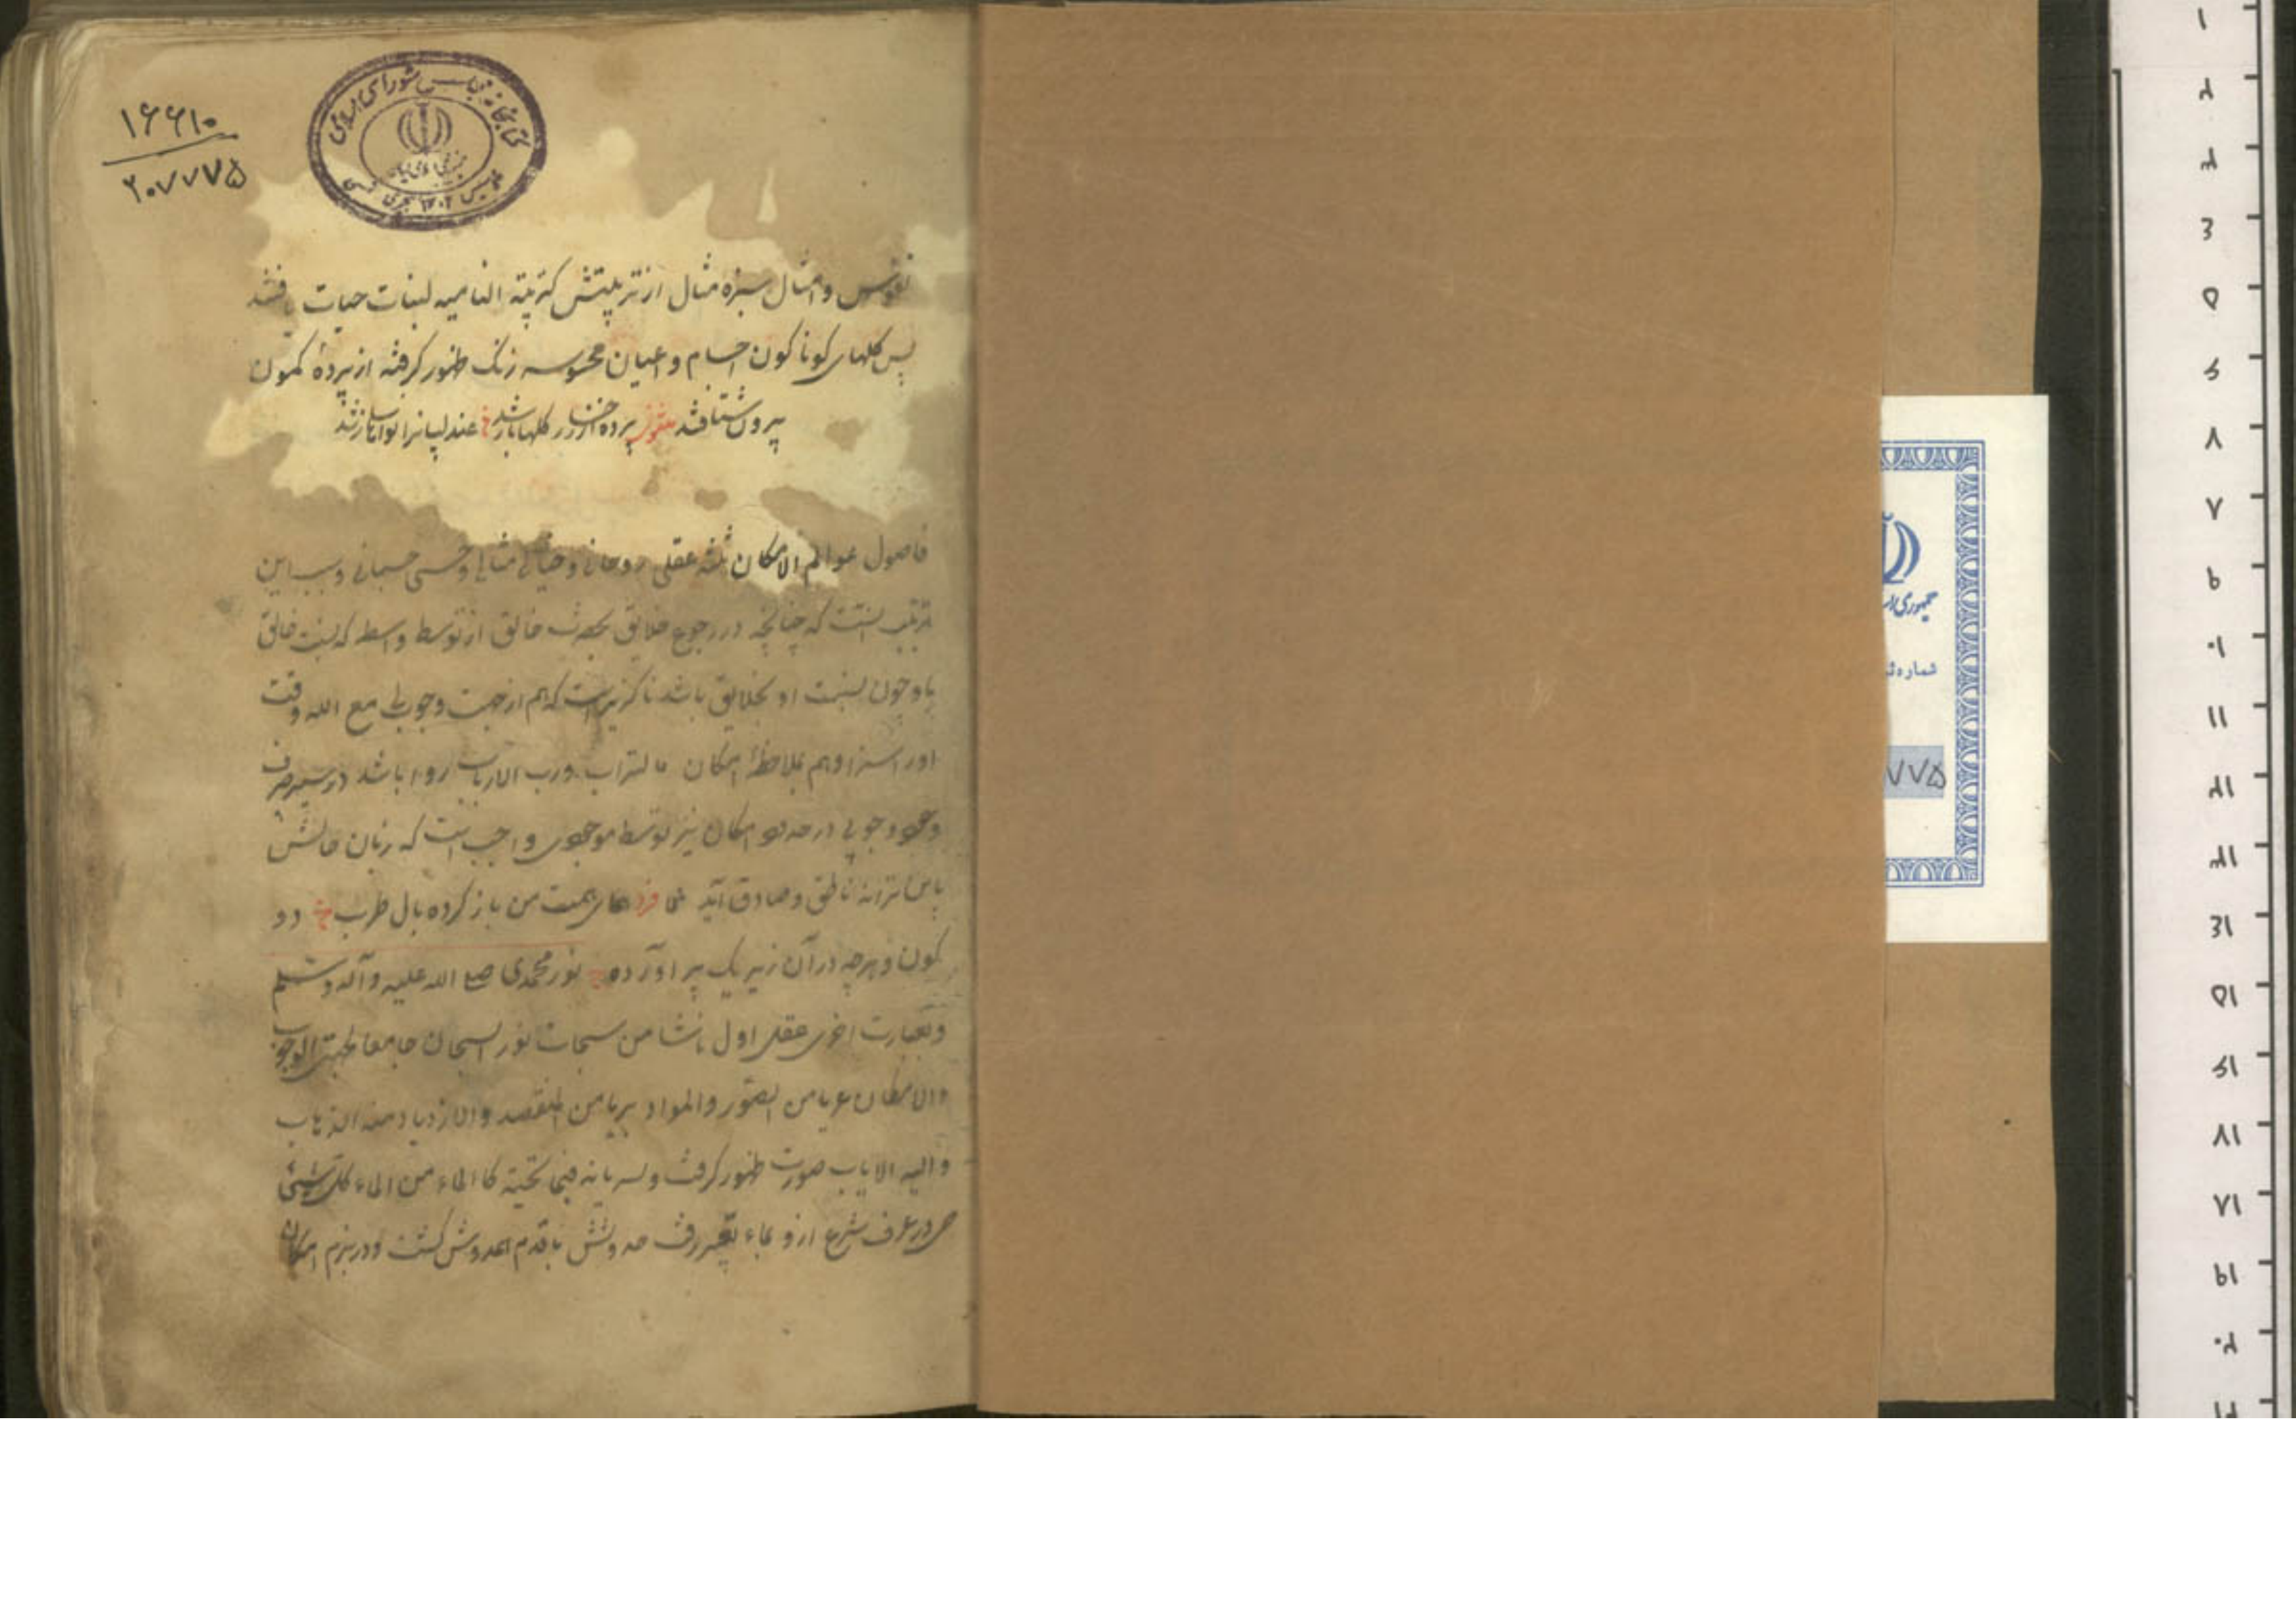 ۱۶۶۱۰
۲۰۷۷۷۵
کتابخانه مجلس شورای اسلامی
نفوس و امثال سبزه مثال از تربیتش کتربیة النامیه لنبات حیات یافتند
پس گلهای کوناکون اجسام و اعیان محسوسه رنک ظهور کرفته از پردهٔ کمون
بیرون شتافتند مثنوی پرده از رخسار گلها باز شد عندلیبانرا نواها ساز شد
فاصول عوالم الامکان ثلثه عقلی روحانی و خیالی مثالی و حسی جسمانی و سبب این
ترتیب اینست که چنانچه در رجوع خلایق بحضرت خالق از توسط واسطه که نسبت خالق
باو چون نسبت او بخلایق باشد ناکزیر است که هم از جهت وجوبی مع الله وقت
او را سزا و هم بملاحظهٔ امکان ما للتراب و رب الارباب روا باشد در سیر صرف
وجود وجوبی در حدود امکان نیز توسط موجودی واجب است که زبان حالش
باین ترانه ناطق و صادق آید فرد همای همت من باز کرده بال طرب دو
کون و هرچه در آن زیر یک پر آورده نور محمدی صلی الله علیه و آله و سلم
و بعبارت اخری عقل اول ناشا من سبحات نور السبحان جامعا لجهتی الوجوب
والامکان عریا من الصور والمواد بریا من النقص والازدیاد منه الذهاب
والیه الایاب صورت ظهور کرفت و لسریانه فیما تحتیه کالماء من الماء کل شیئ
حی در عرف شرع ازو بماء تعبیر رفت حدوثش با قدم همدوش کشت و در بزم امکان
جمهوری اس
شماره ث
۷۷۵
۱
۲
۳
۴
۵
۶
۷
۸
۹
۱۰
۱۱
۱۲
۱۳
۱۴
۱۵
۱۶
۱۷
۱۸
۱۹
۲۰